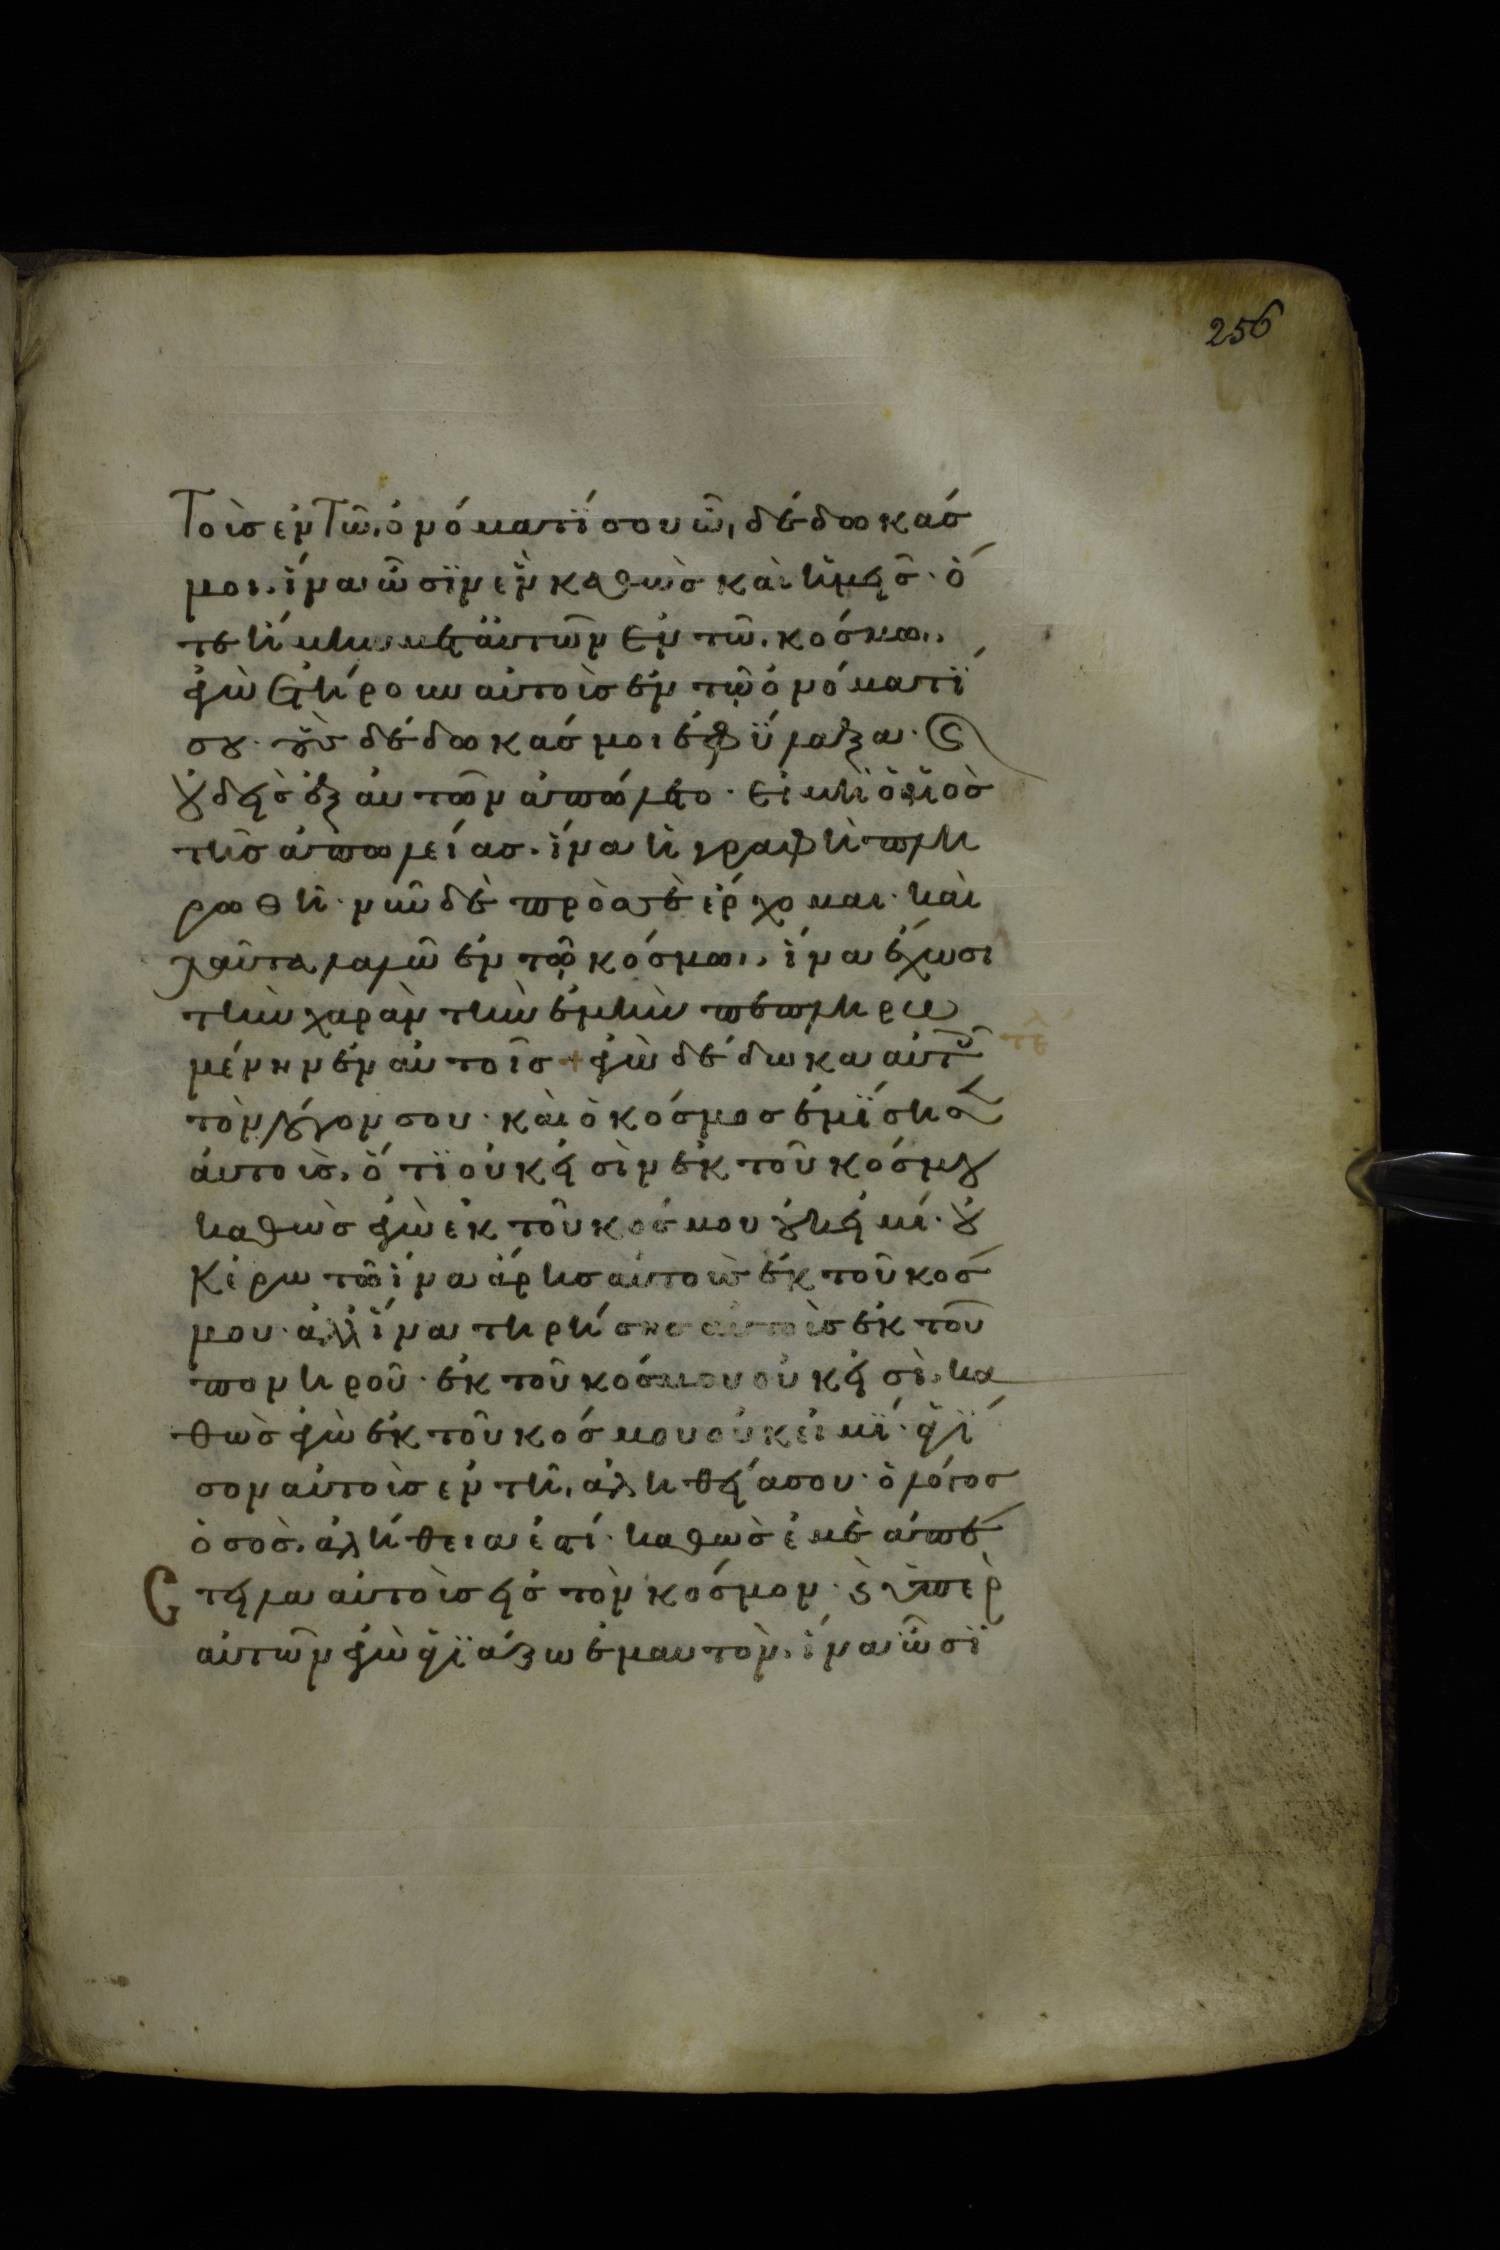 256
τοὺς ἐν τῶ ὀνόματί σου ὧ, δέδωκάς
μοι. ἵνα ὦσϊν ἓν καθὼς καὶ ἡμεῖς· ὅ
τε ἤμην μετ αὐτῶν ἐν τῶ, κόσμω,
ἐγὼ ἐτήρουν αὐτοὺς ἐν τῶ ὀνόματί
σου· οὓς δέδωκάς μοι ἐφύλαξα· καὶ
οὐδεὶς ἐξ αὐτῶν ἀπώλετο· εἰ μὴ ὁ υἱὸς
τῆς ἀπωλείας. ἵνα ἡ γραφὴ πλη
ρωθῆ· νῦν δὲ πρὸς σὲ ἔρχομαι· καὶ
ταῦτα λαλῶ ἐν τῶ κόσμω, ἵνα ἔχωσι
τὴν χαρὰν τὴν ἐμὴν πεπληρω
μένην ἐν αὐτοῖς + ἐγὼ δέδωκα αὐτοῖς τέλ
τὸν λόγον σου· καὶ ὁ κόσμος ἐμίσησεν
αὐτοὺς, ὅτϊ οὐκ εἰσὶν ἐκ τοῦ κόσμου
καθὼς ἐγὼ ἐκ τοῦ κόσμου οὐκ εἰμί· οὐ
κ ἐρωτῶ ἵνα ἄρης αὐτοὺς ἐκ τοῦ κόσ
μου· ἀλλ ἵνα τηρήσης αὐτοὺς ἐκ τοῦ
πονηροῦ· ἐκ τοῦ κόσμου οὐκ εἰσὶ. κα
θὼς ἐγὼ ἐκ τοῦ κόσμου οὐκ εἰμί· ἁγί
ασον αὐτοὺς ἐν τῆ, ἀληθεία σου· ὁ λόγος
ὁ σὸς. ἀλήθεια ἐστί· καθὼς ἐμὲ ἀπέ
στειλα αὐτοὺς εἰς τὸν κόσμον· καὶ ὑπὲρ
αὐτῶν ἐγὼ ἁγϊάζω ἐμαυτὸν. ἵνα ὦσϊ